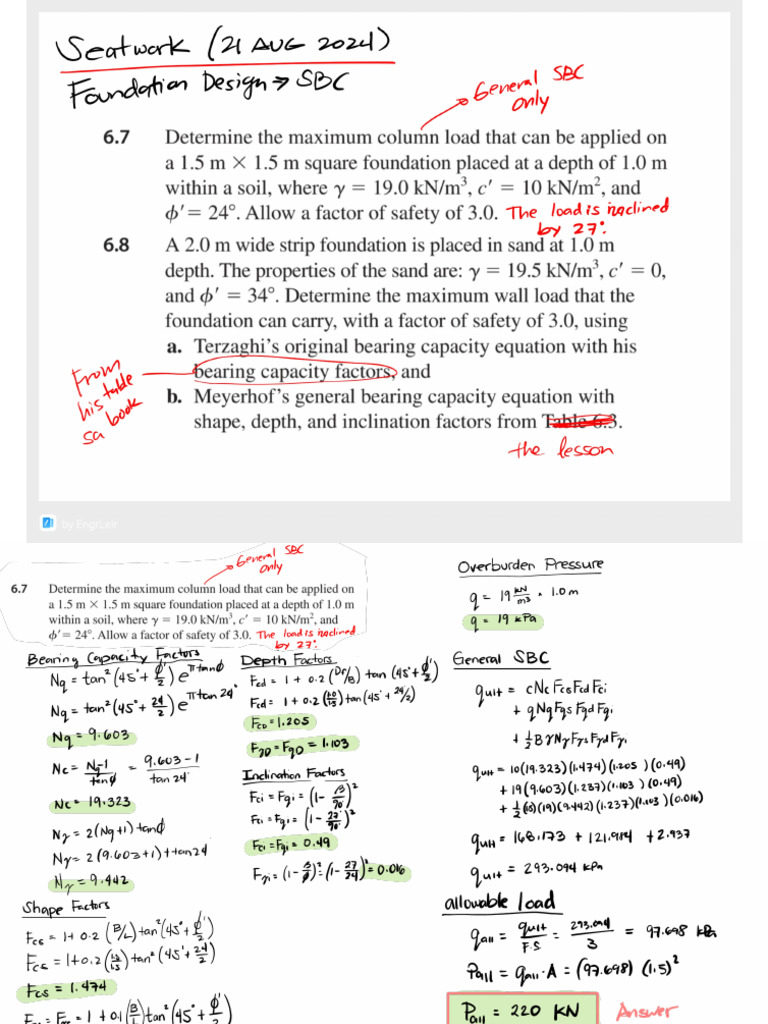 Seatwork (21 AUG 2024)
Foundation Design → SBC
General SBC
only
6.7 Determine the maximum column load that can be applied on
a 1.5 m × 1.5 m square foundation placed at a depth of 1.0 m
within a soil, where γ = 19.0 kN/m³, c′ = 10 kN/m², and
ϕ′ = 24°. Allow a factor of safety of 3.0. The load is inclined
by 27°.
6.8 A 2.0 m wide strip foundation is placed in sand at 1.0 m
depth. The properties of the sand are: γ = 19.5 kN/m³, c′ = 0,
and ϕ′ = 34°. Determine the maximum wall load that the
foundation can carry, with a factor of safety of 3.0, using
a. Terzaghi's original bearing capacity equation with his
bearing capacity factors, and
b. Meyerhof's general bearing capacity equation with
shape, depth, and inclination factors from Table 6.3.
From
his table
sa book
the lesson
by EngrLeir
General SBC
only
6.7 Determine the maximum column load that can be applied on
a 1.5 m × 1.5 m square foundation placed at a depth of 1.0 m
within a soil, where γ = 19.0 kN/m³, c′ = 10 kN/m², and
ϕ′ = 24°. Allow a factor of safety of 3.0. The load is inclined
by 27°.
Bearing Capacity Factors
Nq = tan²(45° + ϕ′/2) e^πtanϕ
Nq = tan²(45° + 24/2) e^πtan24°
Nq = 9.603
Nc = Nq-1/tanϕ = 9.603-1/tan24°
Nc = 19.323
Nγ = 2(Nq+1)tanϕ
Nγ = 2(9.603+1)+tan24
Nγ = 9.442
Shape Factors
Fcs = 1+0.2 (B/L) tan²(45° + ϕ′/2)
Fcs = 1+0.2 (1.5/1.5) tan²(45° + 24/2)
Fcs = 1.474
= 1+0.1 (B/L) tan²(45° + ϕ′/2)
Depth Factors
Fcd = 1 + 0.2 (Df/B) tan (45° + ϕ′/2)
Fcd = 1 + 0.2 (1.0/1.5) tan (45° + 24/2)
FcD = 1.205
FγD = FqD = 1.103
Inclination Factors
Fci = Fqi = (1 - β/90°)²
Fci = Fqi = (1 - 27°/90°)²
Fci = Fqi = 0.49
Fγi = (1 - β/ϕ)² = (1 - 27/24)² = 0.016
Overburden Pressure
q = 19 kN/m³ × 1.0m
q = 19 kPa
General SBC
qult = cNc Fcs Fcd Fci
+ qNq Fqs Fqd Fqi
+ ½ B γ Nγ Fγs Fγd Fγi
qult = 10(19.323)(1.474)(1.205)(0.49)
+ 19(9.603)(1.237)(1.103)(0.49)
+ ½(1.5)(19)(9.442)(1.237)(1.103)(0.016)
qult = 168.173 + 121.984 + 2.937
qult = 293.094 kPa
allowable load
qall = qult/F.S = 293.094/3 = 97.698 kPa
Pall = qall·A = (97.698)(1.5)²
Pall = 220 KN Answer